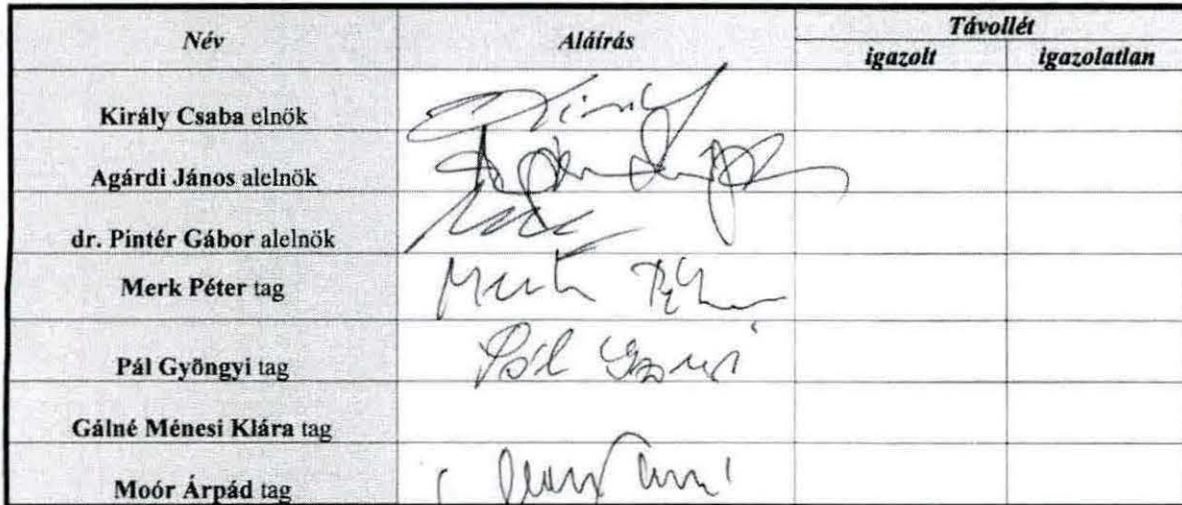 Név Aláírás Távollét
igazolt igazolatlan
Király Csaba elnök
Agárdi János alelnök
dr. Pintér Gábor alelnök
Merk Péter tag Merk
Pál Gyöngyi tag Pál Gyöngyi
Gálné Ménesi Klára tag
Moór Árpád tag